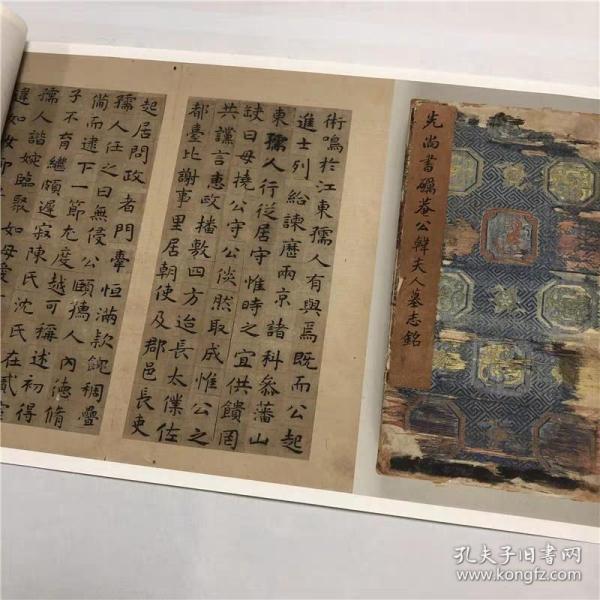 先尚書礪菴公韓夫人墓志銘
術鳴於江東孺人有與焉既而公起
進士列給諫歷兩京諸科叅藩山
東孺人行從居守惟時之宜供饋罔
缺曰毋撓公守公倓然取成惟公之
共讜言惠政播敷四方迨長太僕佐
都臺比謝事里居朝使及郡邑長吏
起居問政者門牽恒滿款飫稠疊
孺人任之曰無侵公頤孺人內德脩
備而逮下一節尤度越可稱述初得
子不育繼頗遲寂陳氏沈氏在貳室
孺人諧婉臨聚如母
違如女
孔夫子旧书网
www.kongfz.com